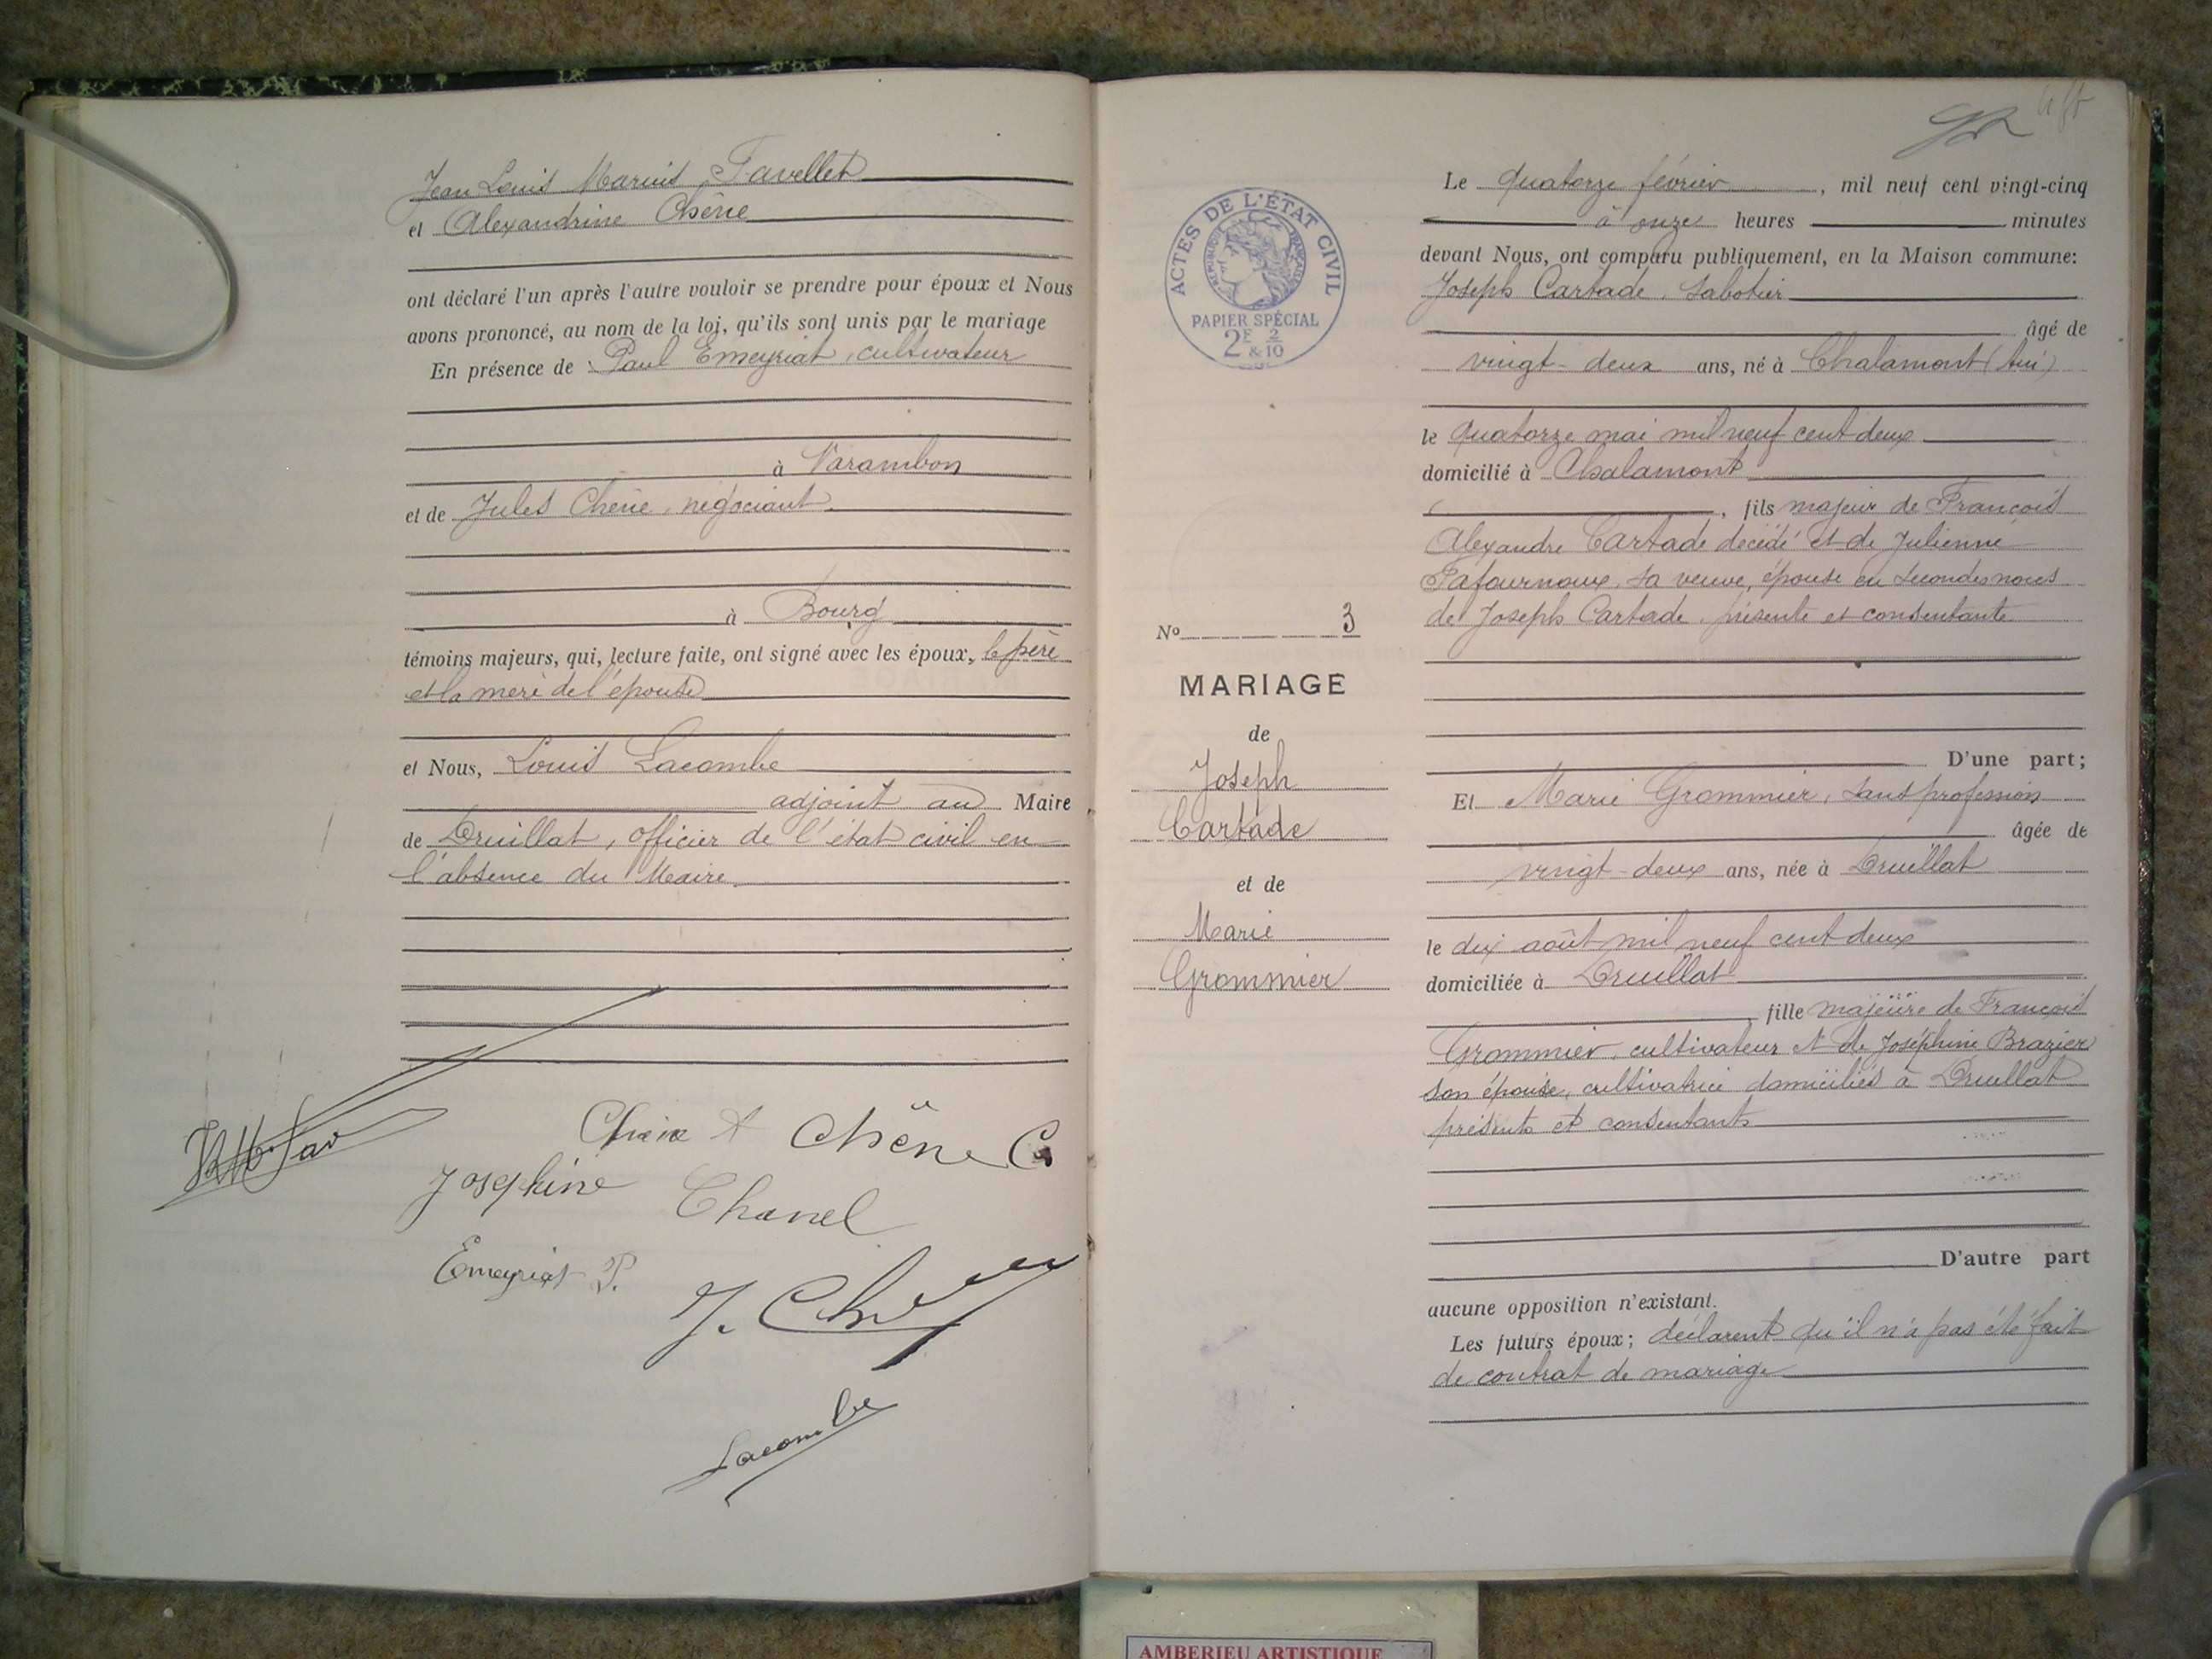 Jean Louis Marius Favellet
et Alexandrine Chêne
ont déclaré l'un après l'autre vouloir se prendre pour époux et Nous
avons prononcé, au nom de la loi, qu'ils sont unis par le mariage
En présence de : Paul Emeyriat, cultivateur
à Varambon
et de Jules Chêne, négociant
à Bourg
témoins majeurs, qui, lecture faite, ont signé avec les époux, le père
et la mère de l'épouse
et Nous, Louis Lacombe
adjoint au Maire
de Druillat, officier de l'état civil en
l'absence du Maire.
Chêne A Chêne C
Josephine Chanel
Emeyriat P.
J. Chêne
Lacombe
ACTES DE L'ÉTAT CIVIL
RÉPUBLIQUE FRANÇAISE
PAPIER SPÉCIAL
2F 2
& 10
No 3
MARIAGE
de
Joseph
Cartade
et de
Marie
Grommier
Le quatorze février, mil neuf cent vingt-cinq
à onze heures minutes
devant Nous, ont comparu publiquement, en la Maison commune:
Joseph Cartade, sabotier
âgé de
vingt-deux ans, né à Chalamont (Ain)
le quatorze mai mil neuf cent deux
domicilié à Chalamont
, fils majeur de François
Alexandre Cartade décédé et de Julienne
Pafournoux, sa veuve, épouse en secondes noces
de Joseph Cartade, présente et consentante
D'une part;
Et Marie Grommier, sans profession
âgée de
vingt-deux ans, née à Druillat
le dix août mil neuf cent deux
domiciliée à Druillat
fille majeure de François
Grommier, cultivateur et de Joséphine Brazier
son épouse, cultivatrice domiciliés à Druillat
présents et consentants
D'autre part
aucune opposition n'existant.
Les futurs époux; déclarent qu'il n'a pas été fait
de contrat de mariage
AMBERIEU ARTISTIQUE